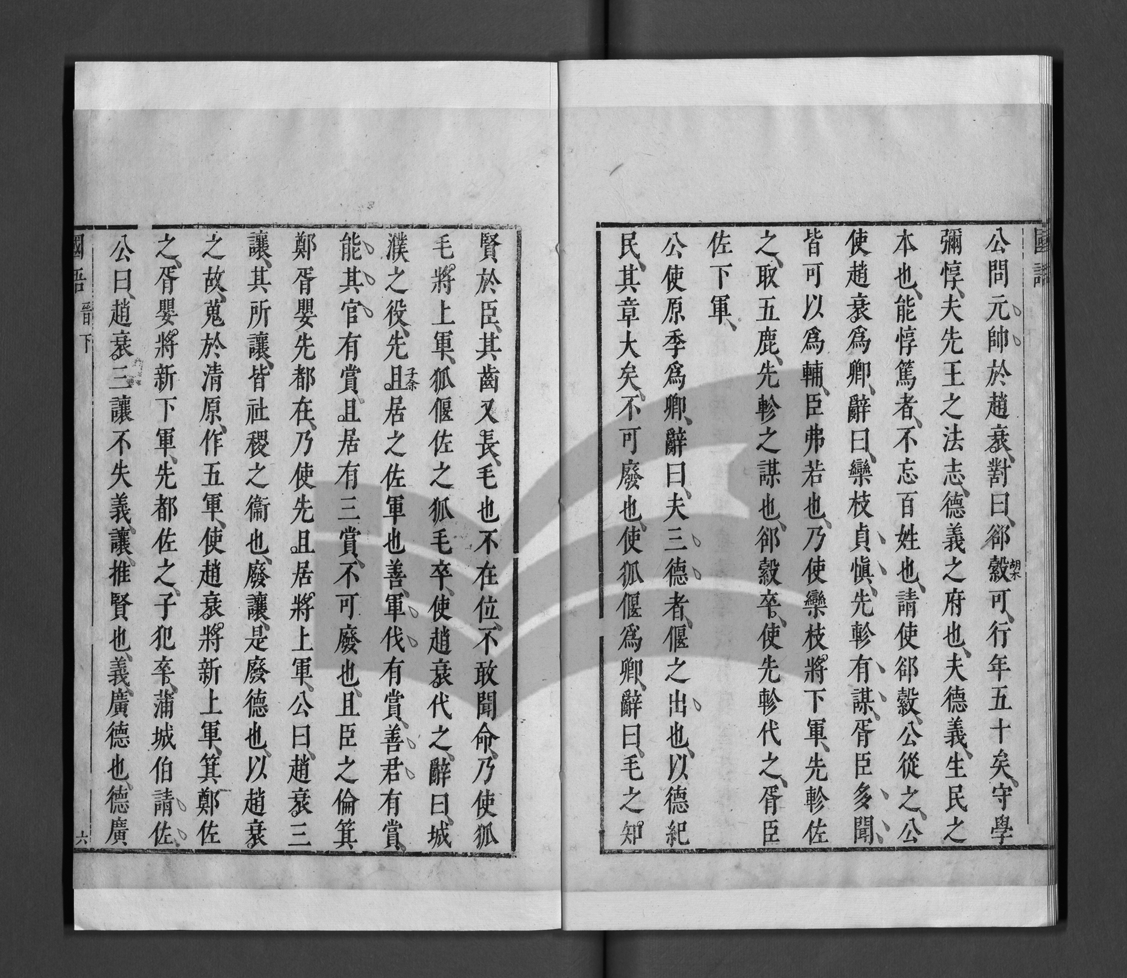 國語
公問元帥於趙衰、對曰、郤縠可、行年五十矣、守學
胡木
彌惇、夫先王之法志、德義之府也、夫德義、生民之
本也、能惇篤者、不忘百姓也、請使郤縠、公從之、公
使趙衰爲卿、辭曰、欒枝貞愼、先軫有謀、胥臣多聞、
皆可以爲輔、臣弗若也、乃使欒枝將下軍、先軫佐
之、取五鹿、先軫之謀也、郤縠卒、使先軫代之、胥臣
佐下軍、
公使原季爲卿、辭曰、夫三德者、偃之出也、以德紀
民、其章大矣、不可廢也、使狐偃爲卿、辭曰、毛之知
賢於臣、其齒又長、毛也不在位、不敢聞命、乃使狐
毛將上軍、狐偃佐之、狐毛卒、使趙衰代之、辭曰、城
濮之役、先且居之佐軍也善、軍伐有賞、善君有賞、
子余
能其官有賞、且居有三賞、不可廢也、且臣之倫、箕
鄭胥嬰先都在、乃使先且居將上軍、公曰、趙衰三
讓、其所讓、皆社稷之衞也、廢讓、是廢德也、以趙衰
之故、蒐於清原、作五軍、使趙衰將新上軍、箕鄭佐
之、胥嬰將新下軍、先都佐之、子犯卒、蒲城伯請佐、
公曰、趙衰三讓不失義、讓、推賢也、義、廣德也、德廣
國語 晉下 六